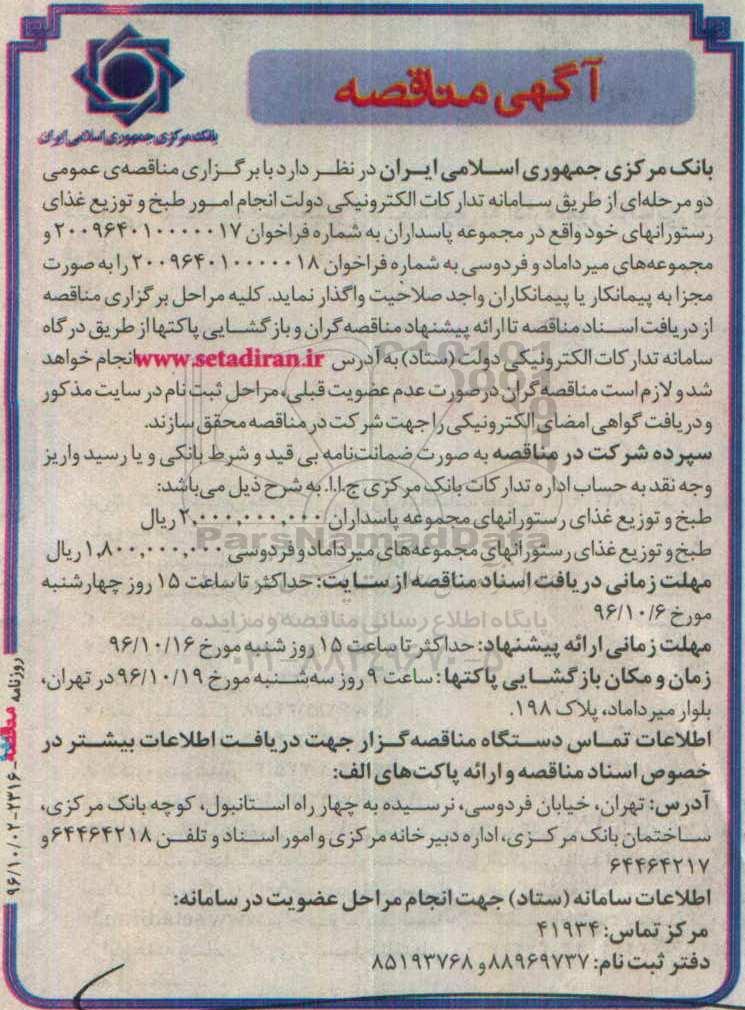 آگهی مناقصه
بانک مرکزی جمهوری اسلامی ایران
بانک مرکزی جمهوری اسلامی ایران در نظر دارد با برگزاری مناقصه‌ی عمومی
دو مرحله‌ای از طریق سامانه تدارکات الکترونیکی دولت انجام امور طبخ و توزیع غذای
رستورانهای خود واقع در مجموعه پاسداران به شماره فراخوان ۲۰۰۹۶۴۰۱۰۰۰۰۰۱۷ و
مجموعه‌های میرداماد و فردوسی به شماره فراخوان ۲۰۰۹۶۴۰۱۰۰۰۰۰۱۸ را به صورت
مجزا به پیمانکار یا پیمانکاران واجد صلاحیت واگذار نماید. کلیه مراحل برگزاری مناقصه
از دریافت اسناد مناقصه تا ارائه پیشنهاد مناقصه‌گران و بازگشایی پاکتها از طریق درگاه
سامانه تدارکات الکترونیکی دولت (ستاد) به آدرس www.setadiran.ir انجام خواهد
شد و لازم است مناقصه‌گران در صورت عدم عضویت قبلی، مراحل ثبت نام در سایت مذکور
و دریافت گواهی امضای الکترونیکی را جهت شرکت در مناقصه محقق سازند.
سپرده شرکت در مناقصه به صورت ضمانت‌نامه بی قید و شرط بانکی و یا رسید واریز
وجه نقد به حساب اداره تدارکات بانک مرکزی ج.ا.ا. به شرح ذیل می‌باشد:
طبخ و توزیع غذای رستورانهای مجموعه پاسداران ۲,۰۰۰,۰۰۰,۰۰۰ ریال
طبخ و توزیع غذای رستورانهای مجموعه‌های میرداماد و فردوسی ۱,۸۰۰,۰۰۰,۰۰۰ ریال
مهلت زمانی دریافت اسناد مناقصه از سایت: حداکثر تا ساعت ۱۵ روز چهارشنبه
مورخ ۹۶/۱۰/۶
مهلت زمانی ارائه پیشنهاد: حداکثر تا ساعت ۱۵ روز شنبه مورخ ۹۶/۱۰/۱۶
زمان و مکان بازگشایی پاکتها: ساعت ۹ روز سه‌شنبه مورخ ۹۶/۱۰/۱۹ در تهران،
بلوار میرداماد، پلاک ۱۹۸.
اطلاعات تماس دستگاه مناقصه‌گزار جهت دریافت اطلاعات بیشتر در
خصوص اسناد مناقصه و ارائه پاکت‌های الف:
آدرس: تهران، خیابان فردوسی، نرسیده به چهار راه استانبول، کوچه بانک مرکزی،
ساختمان بانک مرکزی، اداره دبیرخانه مرکزی و امور اسناد و تلفن ۶۴۴۶۴۲۱۸ و
۶۴۴۶۴۲۱۷
اطلاعات سامانه (ستاد) جهت انجام مراحل عضویت در سامانه:
مرکز تماس: ۴۱۹۳۴
دفتر ثبت نام: ۸۸۹۶۹۷۳۷ و ۸۵۱۹۳۷۶۸
روزنامه مناقصه - ۲۳۱۶ - ۹۶/۱۰/۰۲
ParsNamadData
پایگاه اطلاع رسانی مناقصه و مزایده
۰۲۱-۸۸۳۴۹۶۷۰-۵